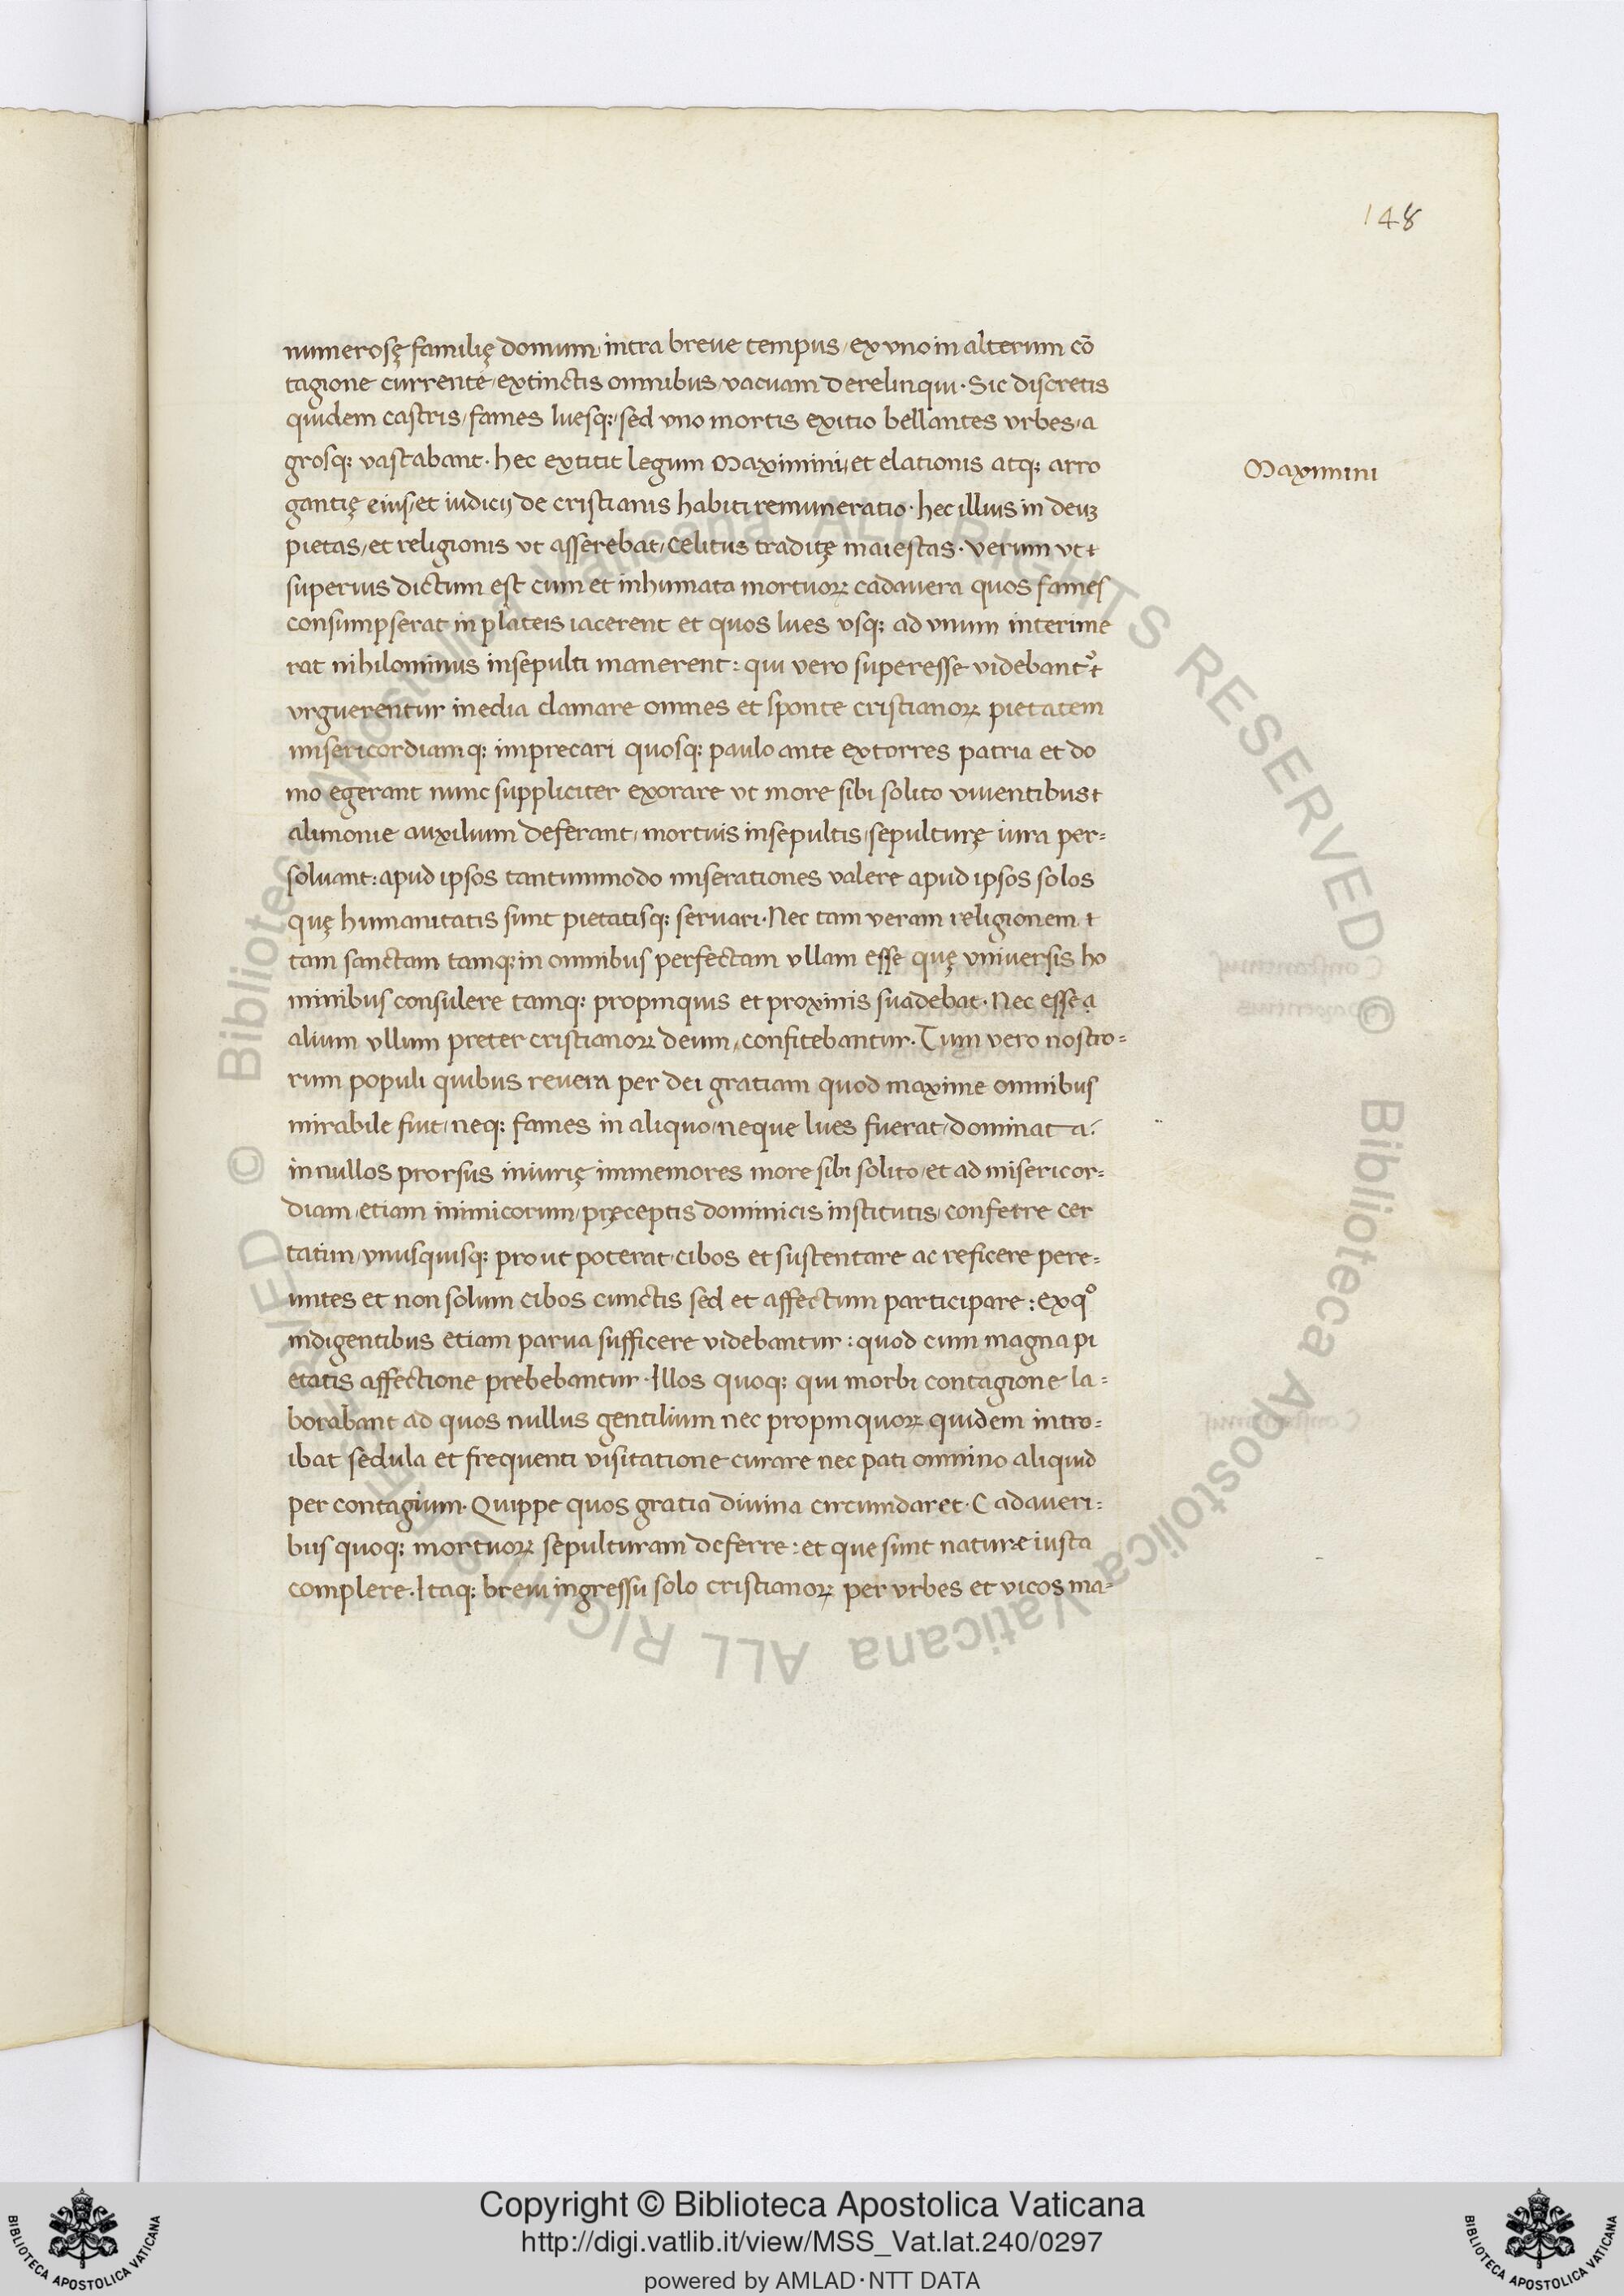 148
numerosę familię domum, intra breue tempus, ex vno in alterum cō
tagione currente, extinctis omnibus, vacuam derelinqui. Sic discretis
quidem castris, fames luesq;, sed vno mortis exitio bellantes vrbes, a
grosq; vastabant. hec extitit legum Maximini, et elationis atq; arro
gantię eius, et iudicij de cristianis habiti remuneratio. hec illius in deuꝫ
pietas, et religionis vt asserebat, celitus traditę maiestas. verum vt
superius dictum est cum et inhumata mortuoꝝ cadauera quos fames
consumpserat in plateis iacerent et quos lues vsq; ad vnum interime
rat nihilominus insepulti manerent: qui vero superesse videbant᷑
vrguerentur inedia clamare omnes et sponte cristianoꝝ pietatem
misericordiamq; imprecari quosq; paulo ante extorres patria et do
mo egerant nunc suppliciter exorare vt more sibi solito viuentibus
alimonie auxilium deferant, mortuis insepultis, sepulturę iura per=
soluant: apud ipsos tantummodo miserationes valere apud ipsos solos
quę humanitatis sunt pietatisq; seruari. Nec tam veram religionem
tam sanctam tamq; in omnibus perfectam vllam esse quę vniuersis ho
minibus consulere tamq; propinquis et proximis suadebat. Nec esse
alium vllum preter cristianoꝝ deum, confitebantur. Tum vero nostro=
rum populi quibus reuera per dei gratiam quod maxime omnibus
mirabile fuit, neq; fames in aliquo, neque lues fuerat, dominata:
in nullos prorsus iniurię immemores more sibi solito, et ad misericor=
diam, etiam inimicorum, pręceptis dominicis institutis, conferre cer
tatim, vnusquisq; prout poterat, cibos et sustentare ac reficere pere=
untes et non solum cibos cunctis sed et affectum participare: ex qº
indigentibus etiam parua sufficere videbantur: quod cum magna pi
etatis affectione prebebantur. Illos quoq; qui morbi contagione la=
borabant ad quos nullus gentilium nec propinquoꝝ quidem intro=
ibat sedula et frequenti visitatione curare nec pati omnino aliquid
per contagium. Quippe quos gratia diuina circumdaret. Cadaueri=
bus quoq; mortuoꝝ sepulturam deferre: et que sunt nature iusta
complere. Itaq; breui ingressu solo cristianoꝝ per vrbes et vicos ma=
Maximini
© Biblioteca Apostolica Vaticana ALL RIGHTS RESERVED © Biblioteca Apostolica Vaticana ALL RIGHTS RESERVED
Copyright © Biblioteca Apostolica Vaticana
http://digi.vatlib.it/view/MSS_Vat.lat.240/0297
powered by AMLAD·NTT DATA
BIBLIOTECA APOSTOLICA VATICANA
BIBLIOTECA APOSTOLICA VATICANA